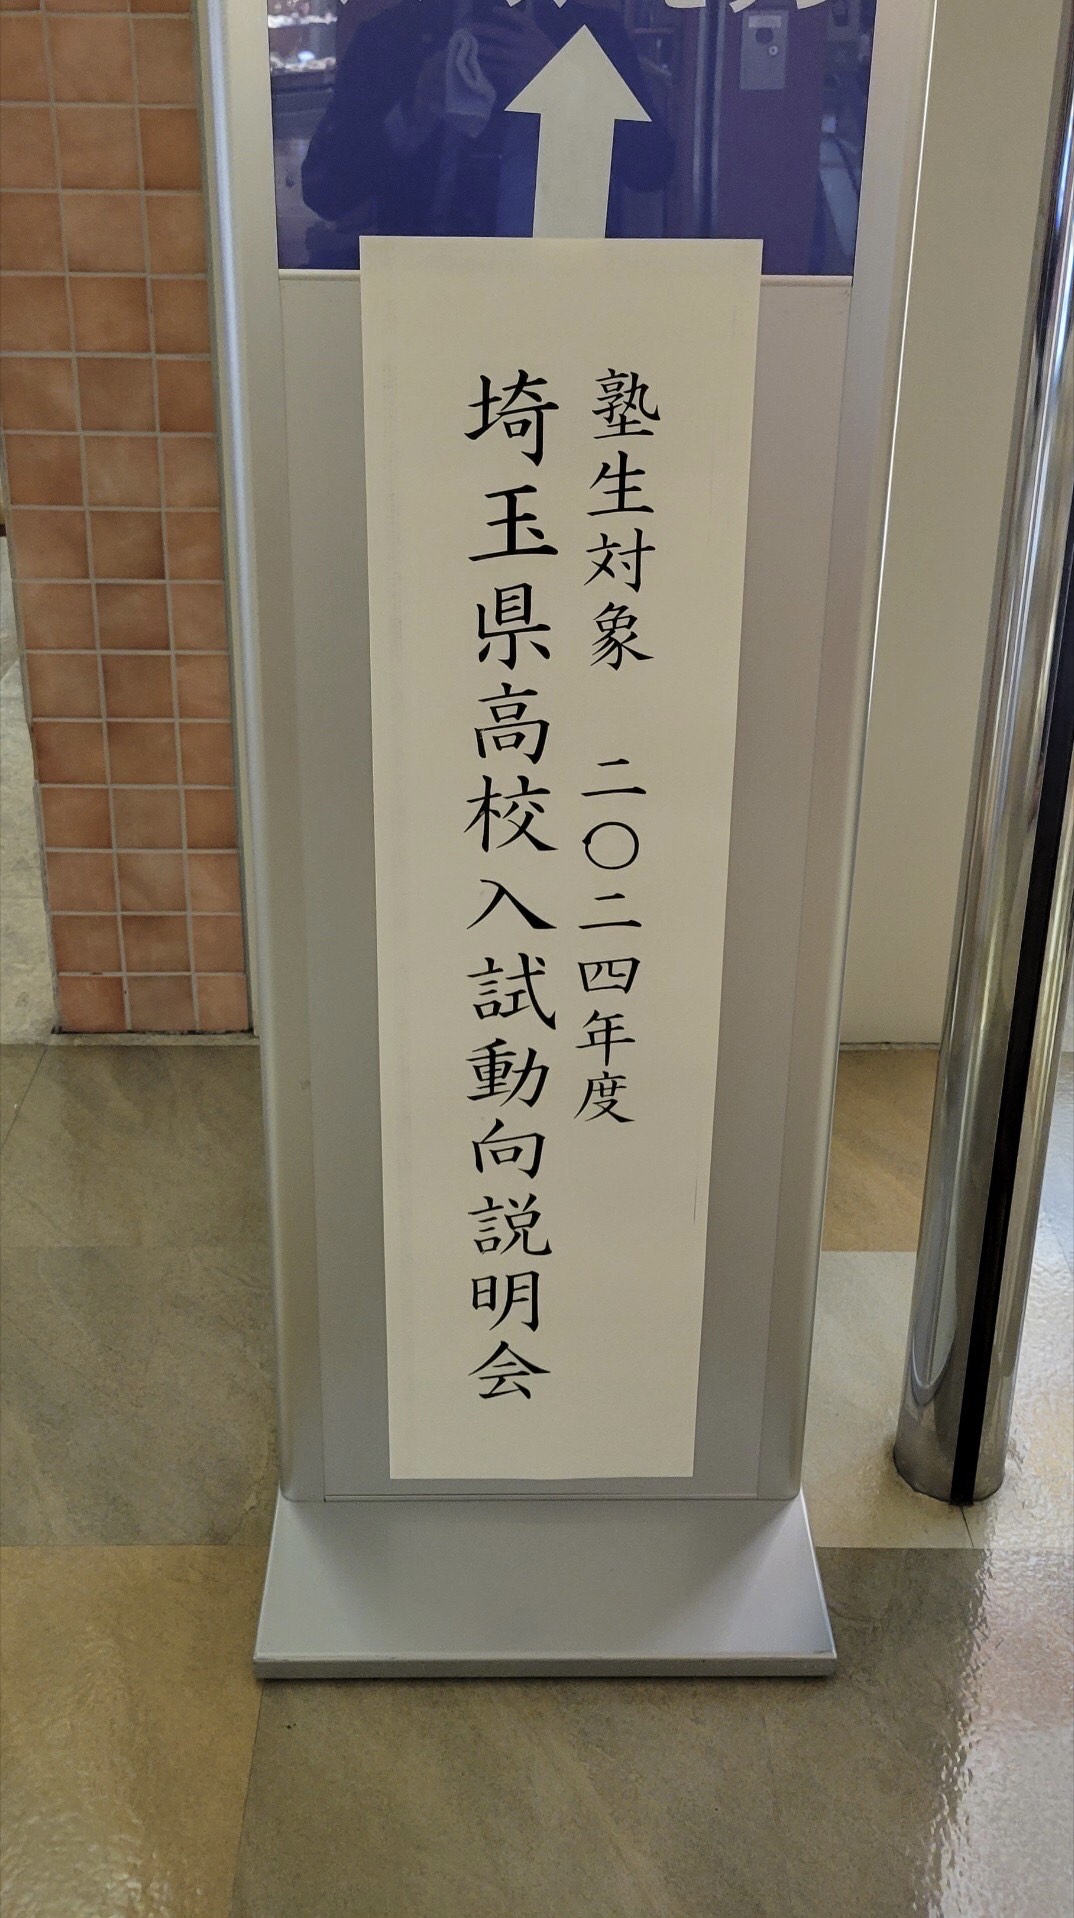 塾生対象 二〇二四年度
埼玉県高校入試動向説明会